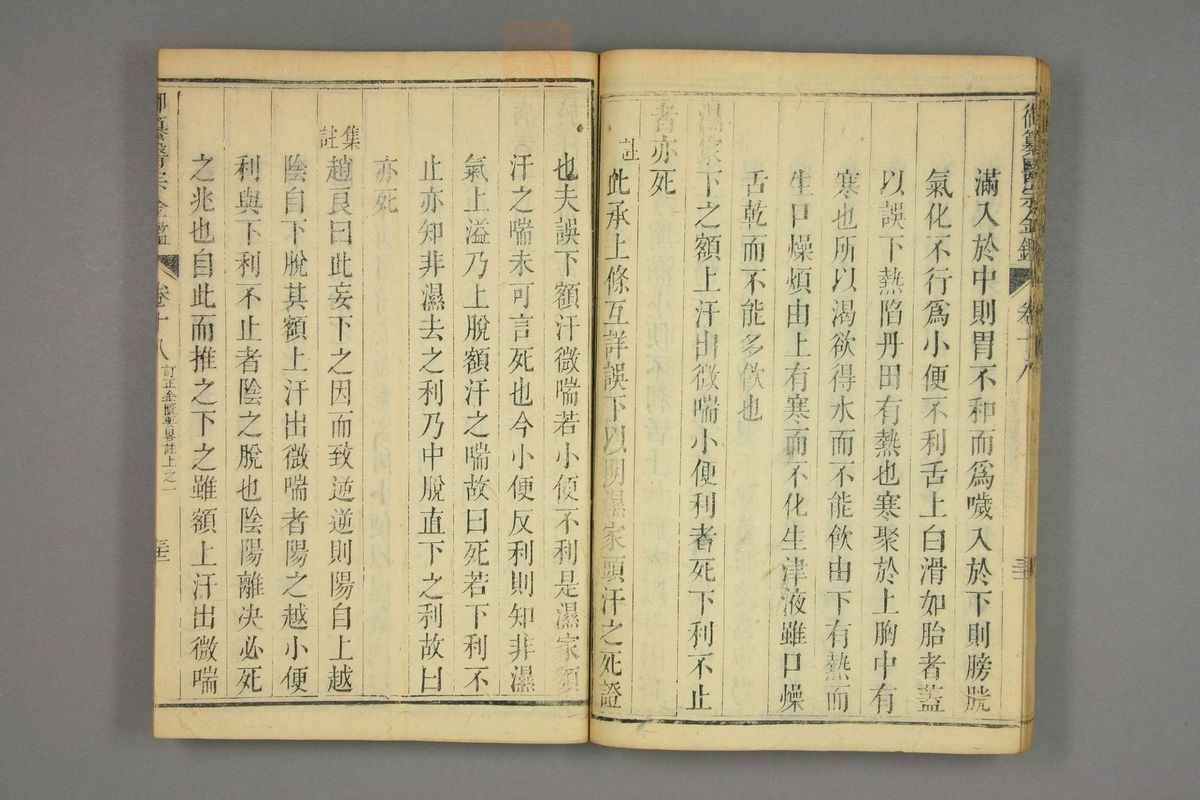 御纂醫宗金鑑 卷十八
滿入於中則胃不和而爲噦入於下則膀胱
氣化不行爲小便不利舌上白滑如胎者蓋
以誤下熱陷丹田有熱也寒聚於上胸中有
寒也所以渴欲得水而不能飲由下有熱而
生口燥煩由上有寒而不化生津液雖口燥
舌乾而不能多飲也
濕家下之額上汗出微喘小便利者死下利不止
者亦死
註此承上條互詳誤下以明濕家頭汗之死證
也夫誤下額汗微喘若小便不利是濕家額
汗之喘未可言死也今小便反利則知非濕
氣上溢乃上脫額汗之喘故曰死若下利不
止亦知非濕去之利乃中脫直下之利故曰
亦死
集註趙良曰此妄下之因而致逆逆則陽自上越
陰自下脫其額上汗出微喘者陽之越小便
利與下利不止者陰之脫也陰陽離決必死
之兆也自此而推之下之雖額上汗出微喘
御纂醫宗金鑑 卷十八 訂正金匱要畧註上之一